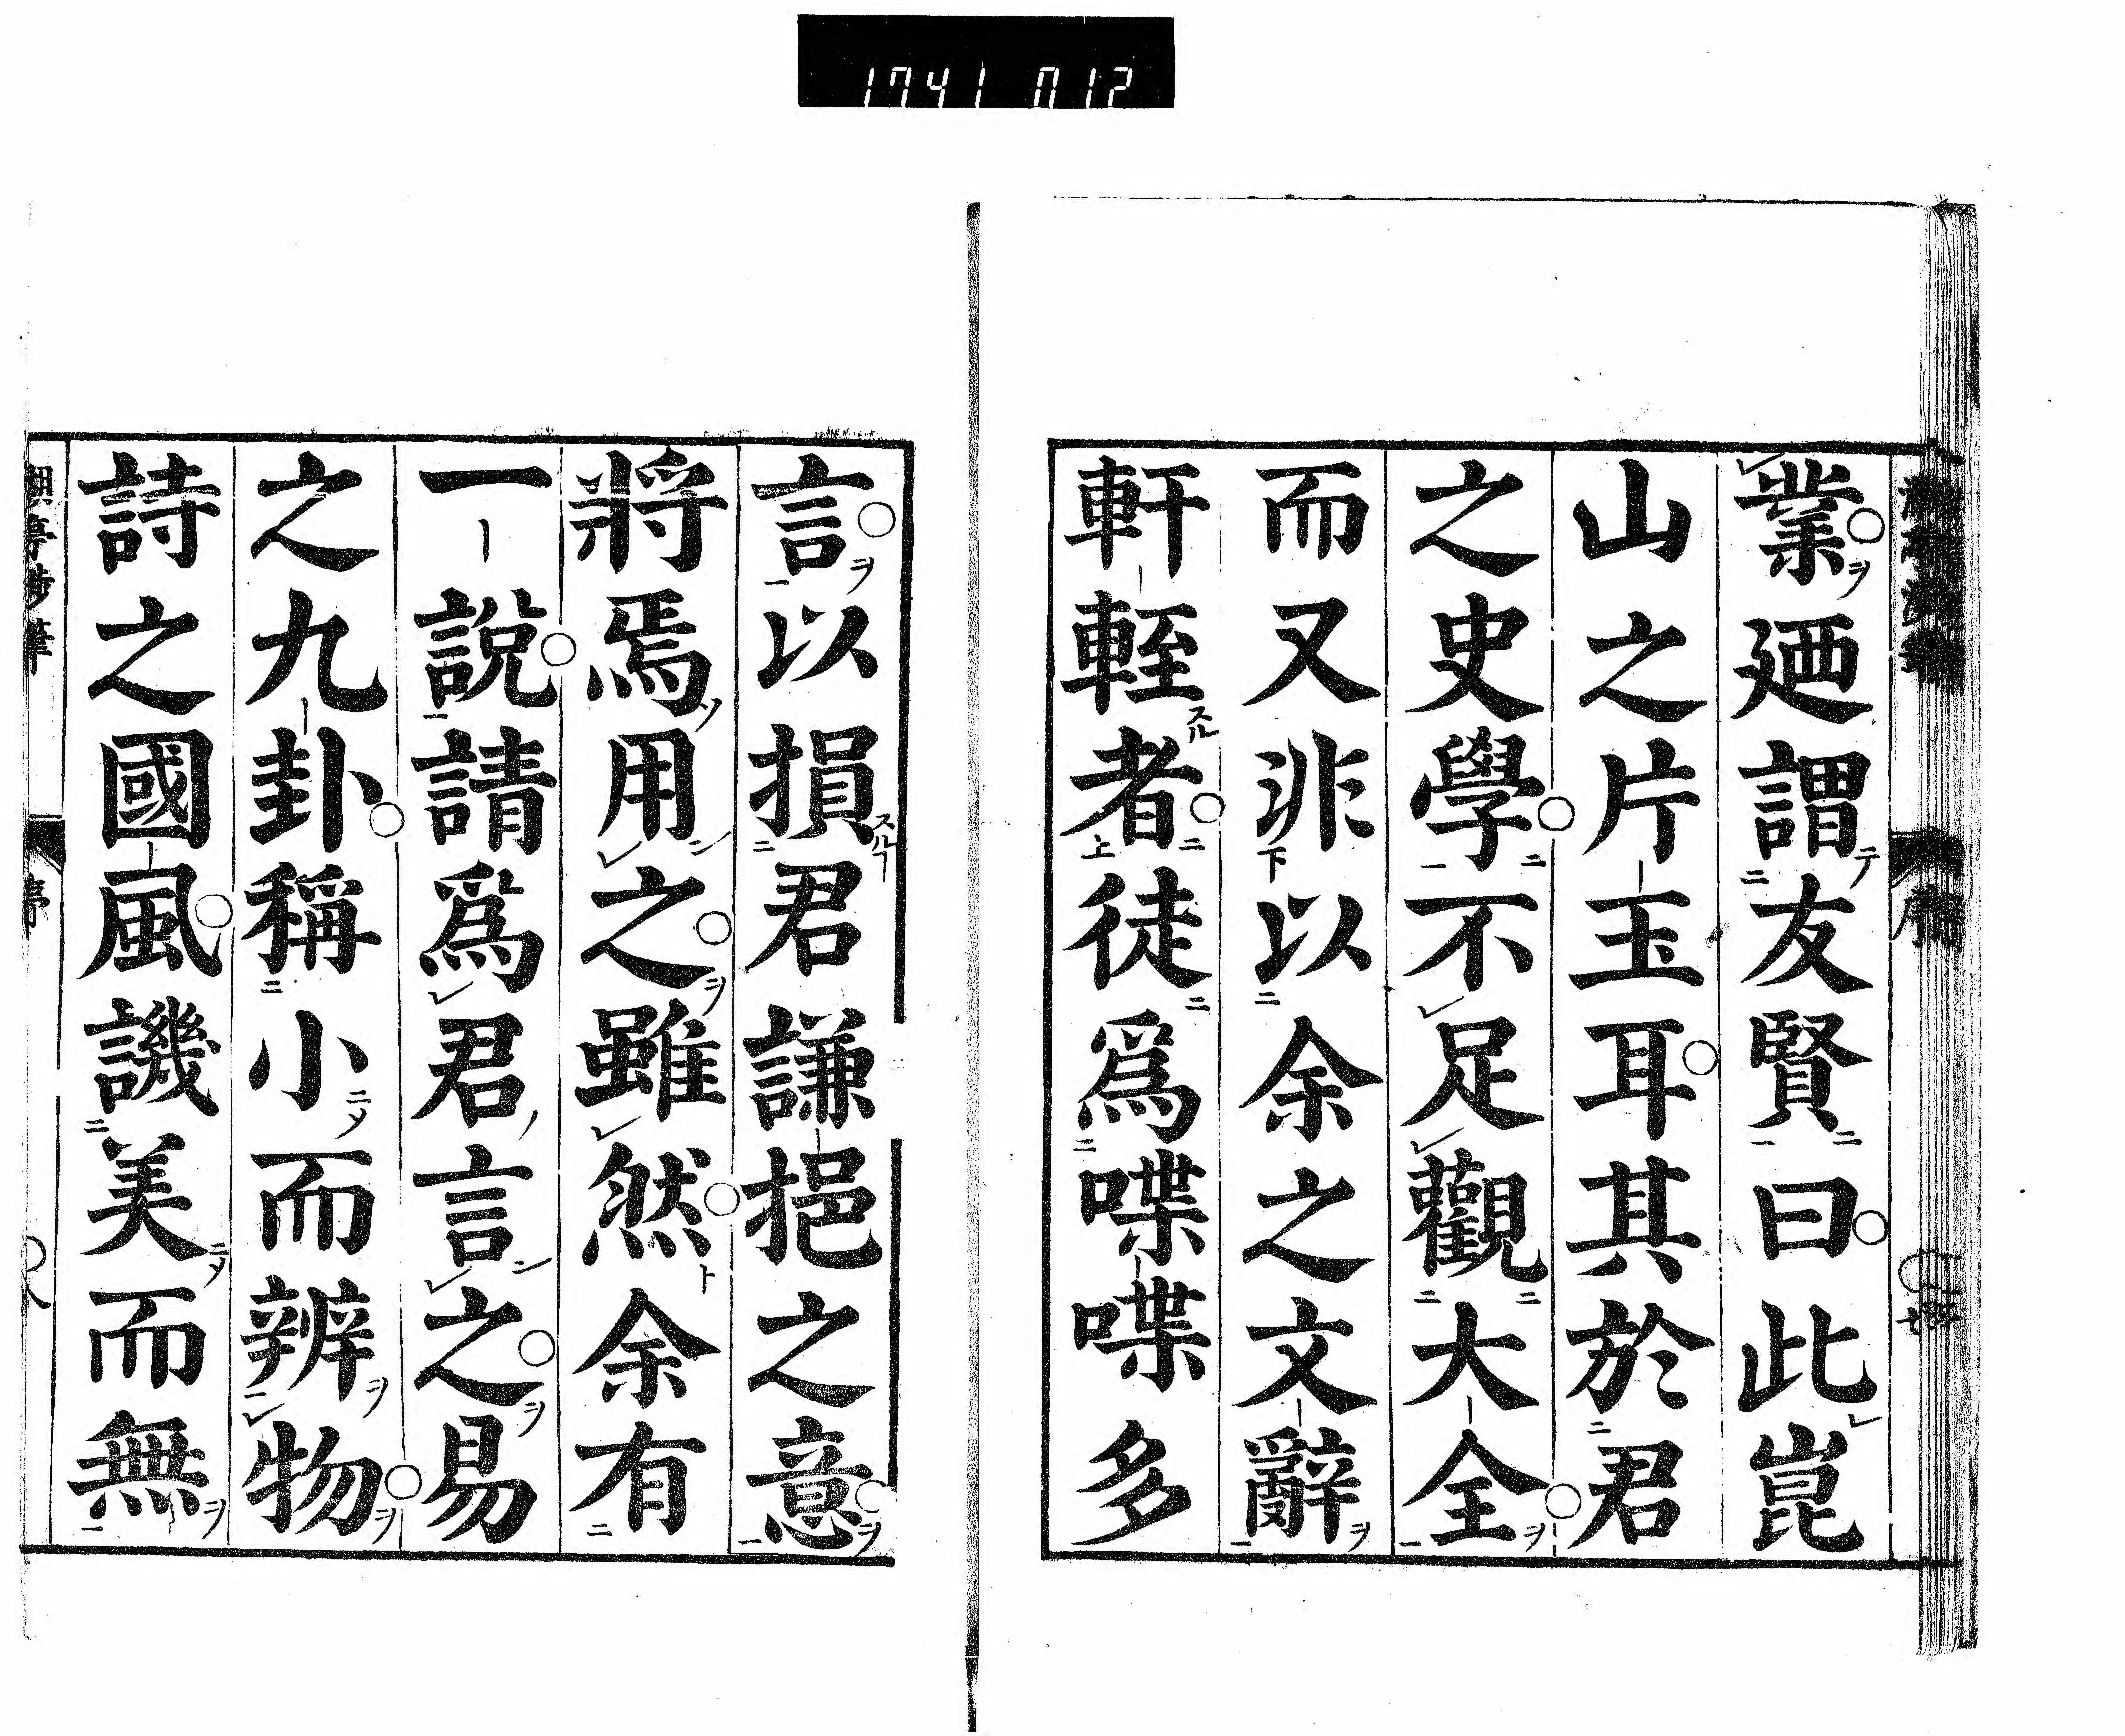 1741 012
業廼謂友賢曰此崑
山之片玉耳其於君
之史學不足觀大全
而又非以余之文辭
軒輊者徒爲喋喋多
言以損君謙挹之意
將焉用之雖然余有
一說請爲君言之易
之九卦稱小而辨物
詩之國風譏美而無
序